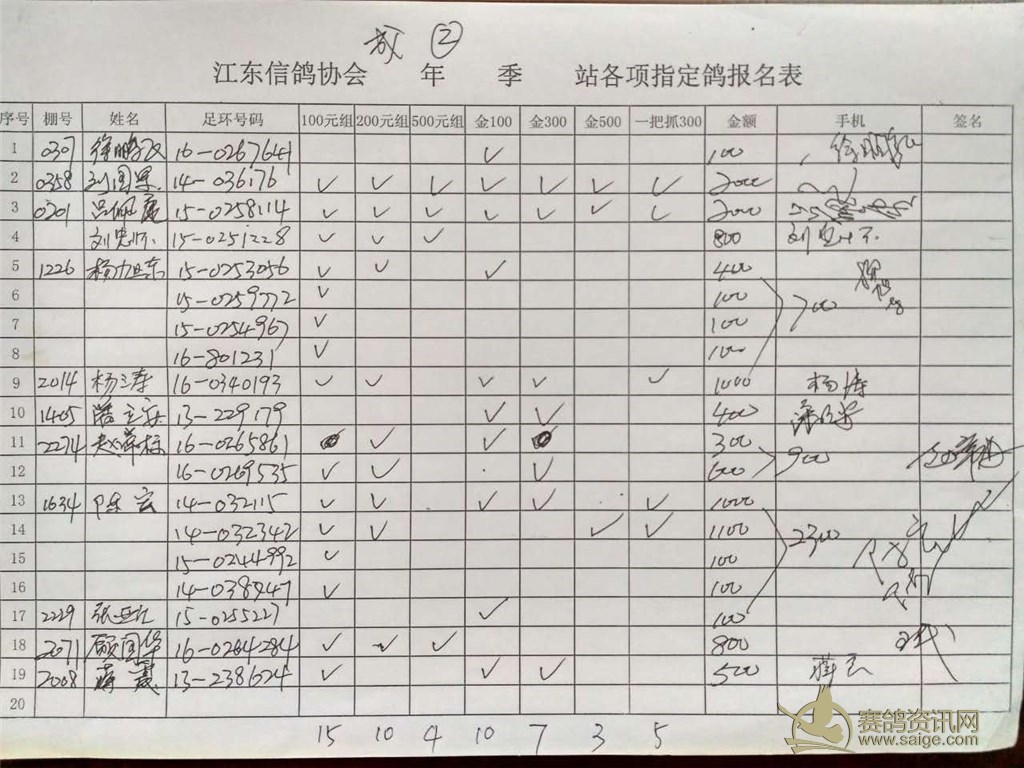 ②
江东信鸽协会 年 季 站各项指定鸽报名表
序号 棚号 姓名 足环号码 100元组 200元组 500元组 金100 金300 金500 一把抓300 金额 手机 签名
1 0307 16-0267641 ✓ 100
2 0358 刘国 14-036176 ✓ ✓ ✓ ✓ ✓ ✓ ✓ 2000
3 0201 15-0258114 ✓ ✓ ✓ ✓ ✓ ✓ ✓ 2000
4 刘忠 15-0251228 ✓ ✓ ✓ 800 刘忠
5 1226 杨 15-0253056 ✓ ✓ ✓ 400
6 15-0259772 ✓ 100 700
7 15-0254967 ✓ 100
8 16-801231 ✓ 100
9 2014 杨涛 16-0340193 ✓ ✓ ✓ ✓ ✓ 1000 杨涛
10 1405 13-229179 ✓ ✓ 400
11 2274 赵 16-0265861 ✓ ✓ 300
12 16-0269535 ✓ ✓ ✓ 600 900
13 1634 陈宏 14-032115 ✓ ✓ ✓ ✓ ✓ 1000
14 14-032342 ✓ ✓ ✓ ✓ 1100 2300
15 15-0244992 ✓ 100
16 14-038947 ✓ 100
17 2229 张 15-0255227 ✓ 100
18 2071 顾国华 16-0264284 ✓ ✓ ✓ 800
19 2008 13-238624 ✓ ✓ ✓ 500
20
15 10 4 10 7 3 5
赛鸽资讯网
www.saige.com